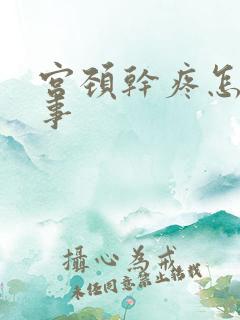 宫颈幹疼怎
事
攝心為戒
未经同意禁止转载